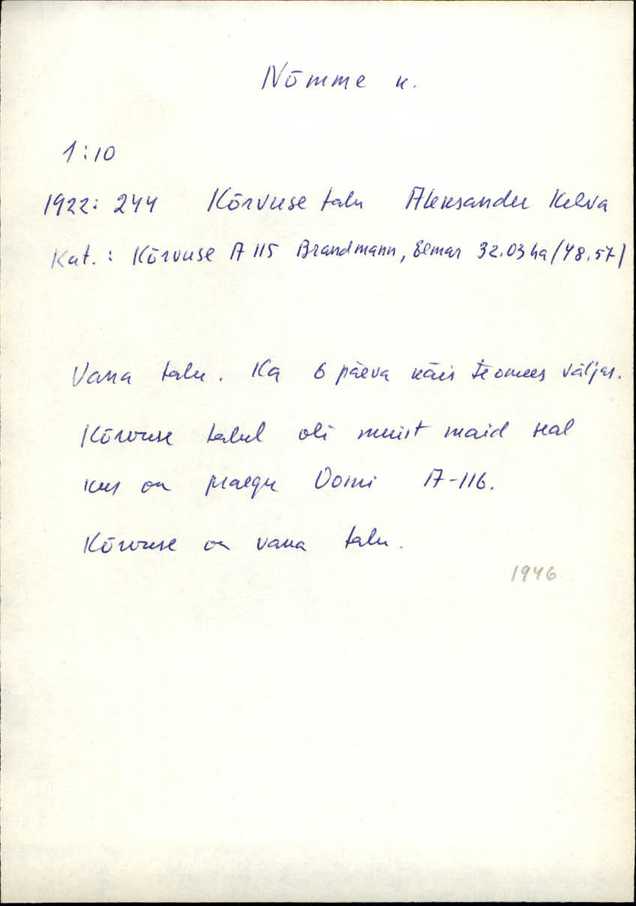 Nõmme k.
1:10
1922: 244 Kõrvuse talu Aleksander Kelva
Kat.: Kõrvuse A 115 Brandmann, Elmar 32.03 ha (48.57)
Vana talu. Ka 6 päeva käis teomees väljas.
Kõrvuse talul oli muist maid seal
kus on praegu Oomi A-116.
Kõrvuse on vana talu.
1946